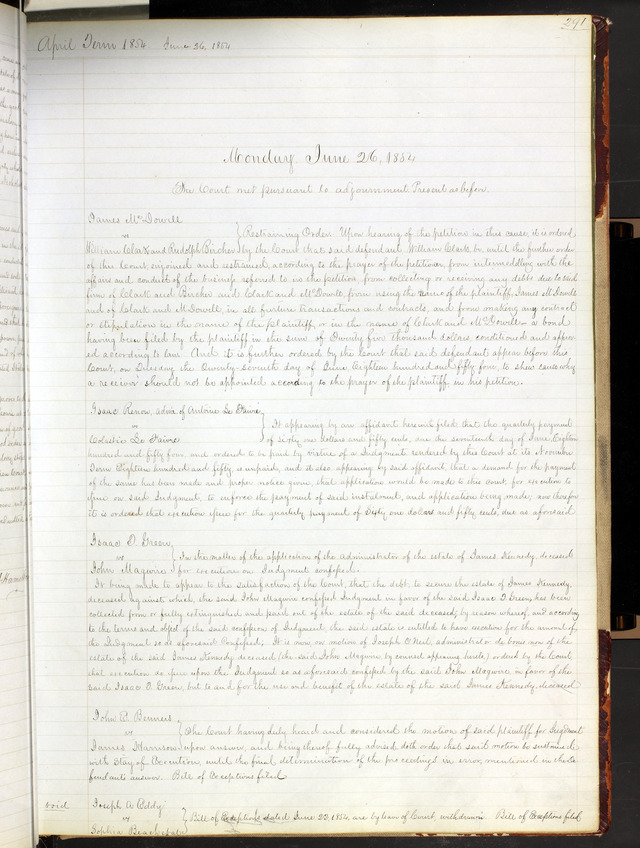 291
April Term 1854. June 26, 1854
Monday June 26, 1854
The Court met pursuant to adjournment. Present as before.
James McDowell
vs
Restraining Order. Upon hearing of the petition in this cause, it is ordered
William Clark and Rudolph Bircher by the Court that said defendant William Clark be, until the further order
of this Court, injoined and restrained, according to the prayer of the petition, from intermeddling with the
affairs and conduct of the business referred to in the petition, from collecting or receiving any debt due to said
firm of Clark and Bircher and Clark and McDowell, from using the name of the plaintiff, James McDowell
and of Clark and McDowell, in all further transactions and contracts, and from making any contract
or stipulations in the name of the plaintiff, or in the name of Clark and McDowell - a bond
having been filed by the plaintiff in the sum of Twenty five thousand dollars, conditioned and approv-
ed according to law. And it is further ordered by the Court that said defendant appear before this
Court, on Tuesday the Twenty-seventh day of June Eighteen hundred and fifty four, to shew cause why
a receiver should not be appointed according to the prayer of the plaintiff, in his petition.
Isaac
vs
It appearing by an affidavit herein filed that the quarterly payment
of sixty one dollars and fifty cents, due the seventeenth day of June Eighteen
hundred and fifty four, and ordered to be paid by virtue of a Judgment rendered by this Court at its November
Term Eighteen hundred and fifty, is unpaid, and it also appearing by said affidavit, that a demand for the payment
of the same has been made and proper notice given, that application would be made to this Court for execution to
issue on said Judgment, to enforce the payment of said instalment, and application being made, now therefore
it is ordered that execution issue for the quarterly payment of Sixty one dollars and fifty cents, due as aforesaid
Isaac O. Green
vs
In the matter of the application of the administrator of the estate of James Kennedy, deceased
John Maguire for execution on Judgment confessed.
It being made to appear to the satisfaction of the Court, that the debt, to secure the estate of James Kennedy,
deceased, against which, the said John Maguire confessed Judgment in favor of the said Isaac O. Green has been
collected from or fully extinguished and paid out of the estate of the said deceased, by reason whereof, and according
to the terms and object of the said confession of Judgment, the said estate is entitled to have execution for the amount of
the Judgment so as aforesaid Confessed; It is now, on motion of Joseph O'Neil, administrator de bonis non of the
estate of the said James Kennedy, deceased (the said John Maguire, by counsel appearing hereto) ordered by the Court,
that execution do issue upon the Judgment so as aforesaid confessed by the said John Maguire in favor of the
said Isaac O. Green, but to and for the use and benefit of the estate of the said James Kennedy, deceased
John
vs
The Court having duly heard and considered the motion of said plaintiff for Judgment
James Harrison upon answer, and being thereof fully advised, doth order that said motion be sustained,
with stay of execution, until the final determination of the proceedings in error, mentioned in the de-
fendants answer. Bill of Exceptions filed
void
Joseph A. Eddy
vs
Bill of Exceptions dated June 23, 1854, are by leave of Court, withdrawn. Bill of Exceptions filed.
Sophia